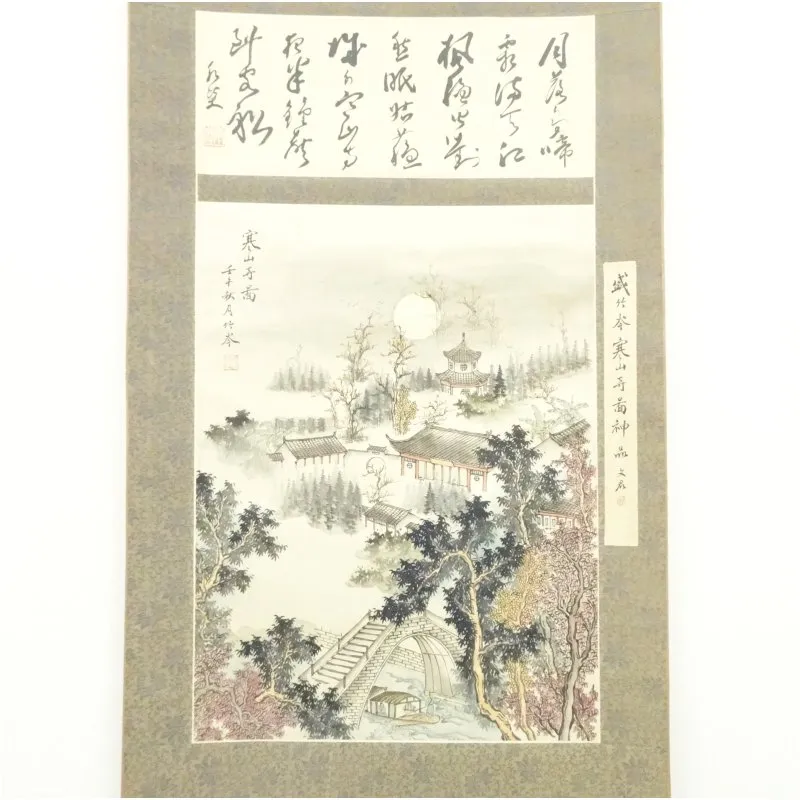 月落烏啼
霜滿天江
楓漁火對
愁眠姑蘇
城外寒山寺
夜半鐘聲
到客船
寒山寺圖
壬午秋月竹岑
盛竹岑寒山寺圖神品